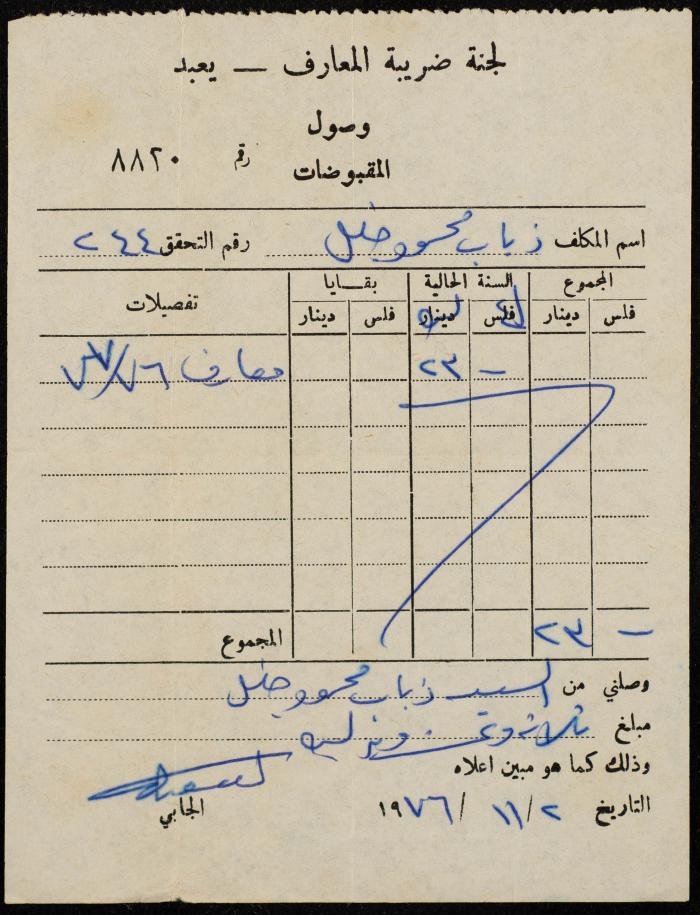 لجنة ضريبة المعارف — يعبد
وصول
المقبوضات
رقم ٨٨٢٠
اسم المكلف ذياب محمود خليل رقم التحقق ٢٤٤
المجموع السنة الحالية بقايا تفصيلات
فلس دينار فلس دينار فلس دينار
— ٢٣ معارف ٧٧/٧٦
المجموع — ٢٣
وصلني من السيد ذياب محمود خليل
مبلغ ثلاثة وعشرون ليرة
وذلك كما هو مبين اعلاه
التاريخ ٢/١١/١٩٧٦ الجابي